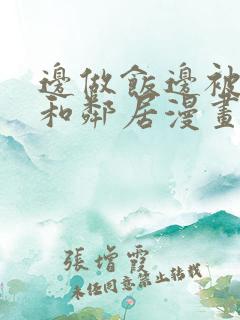 邊做飯邊被
和鄰居漫畫
張增霞
未經同意禁止轉載